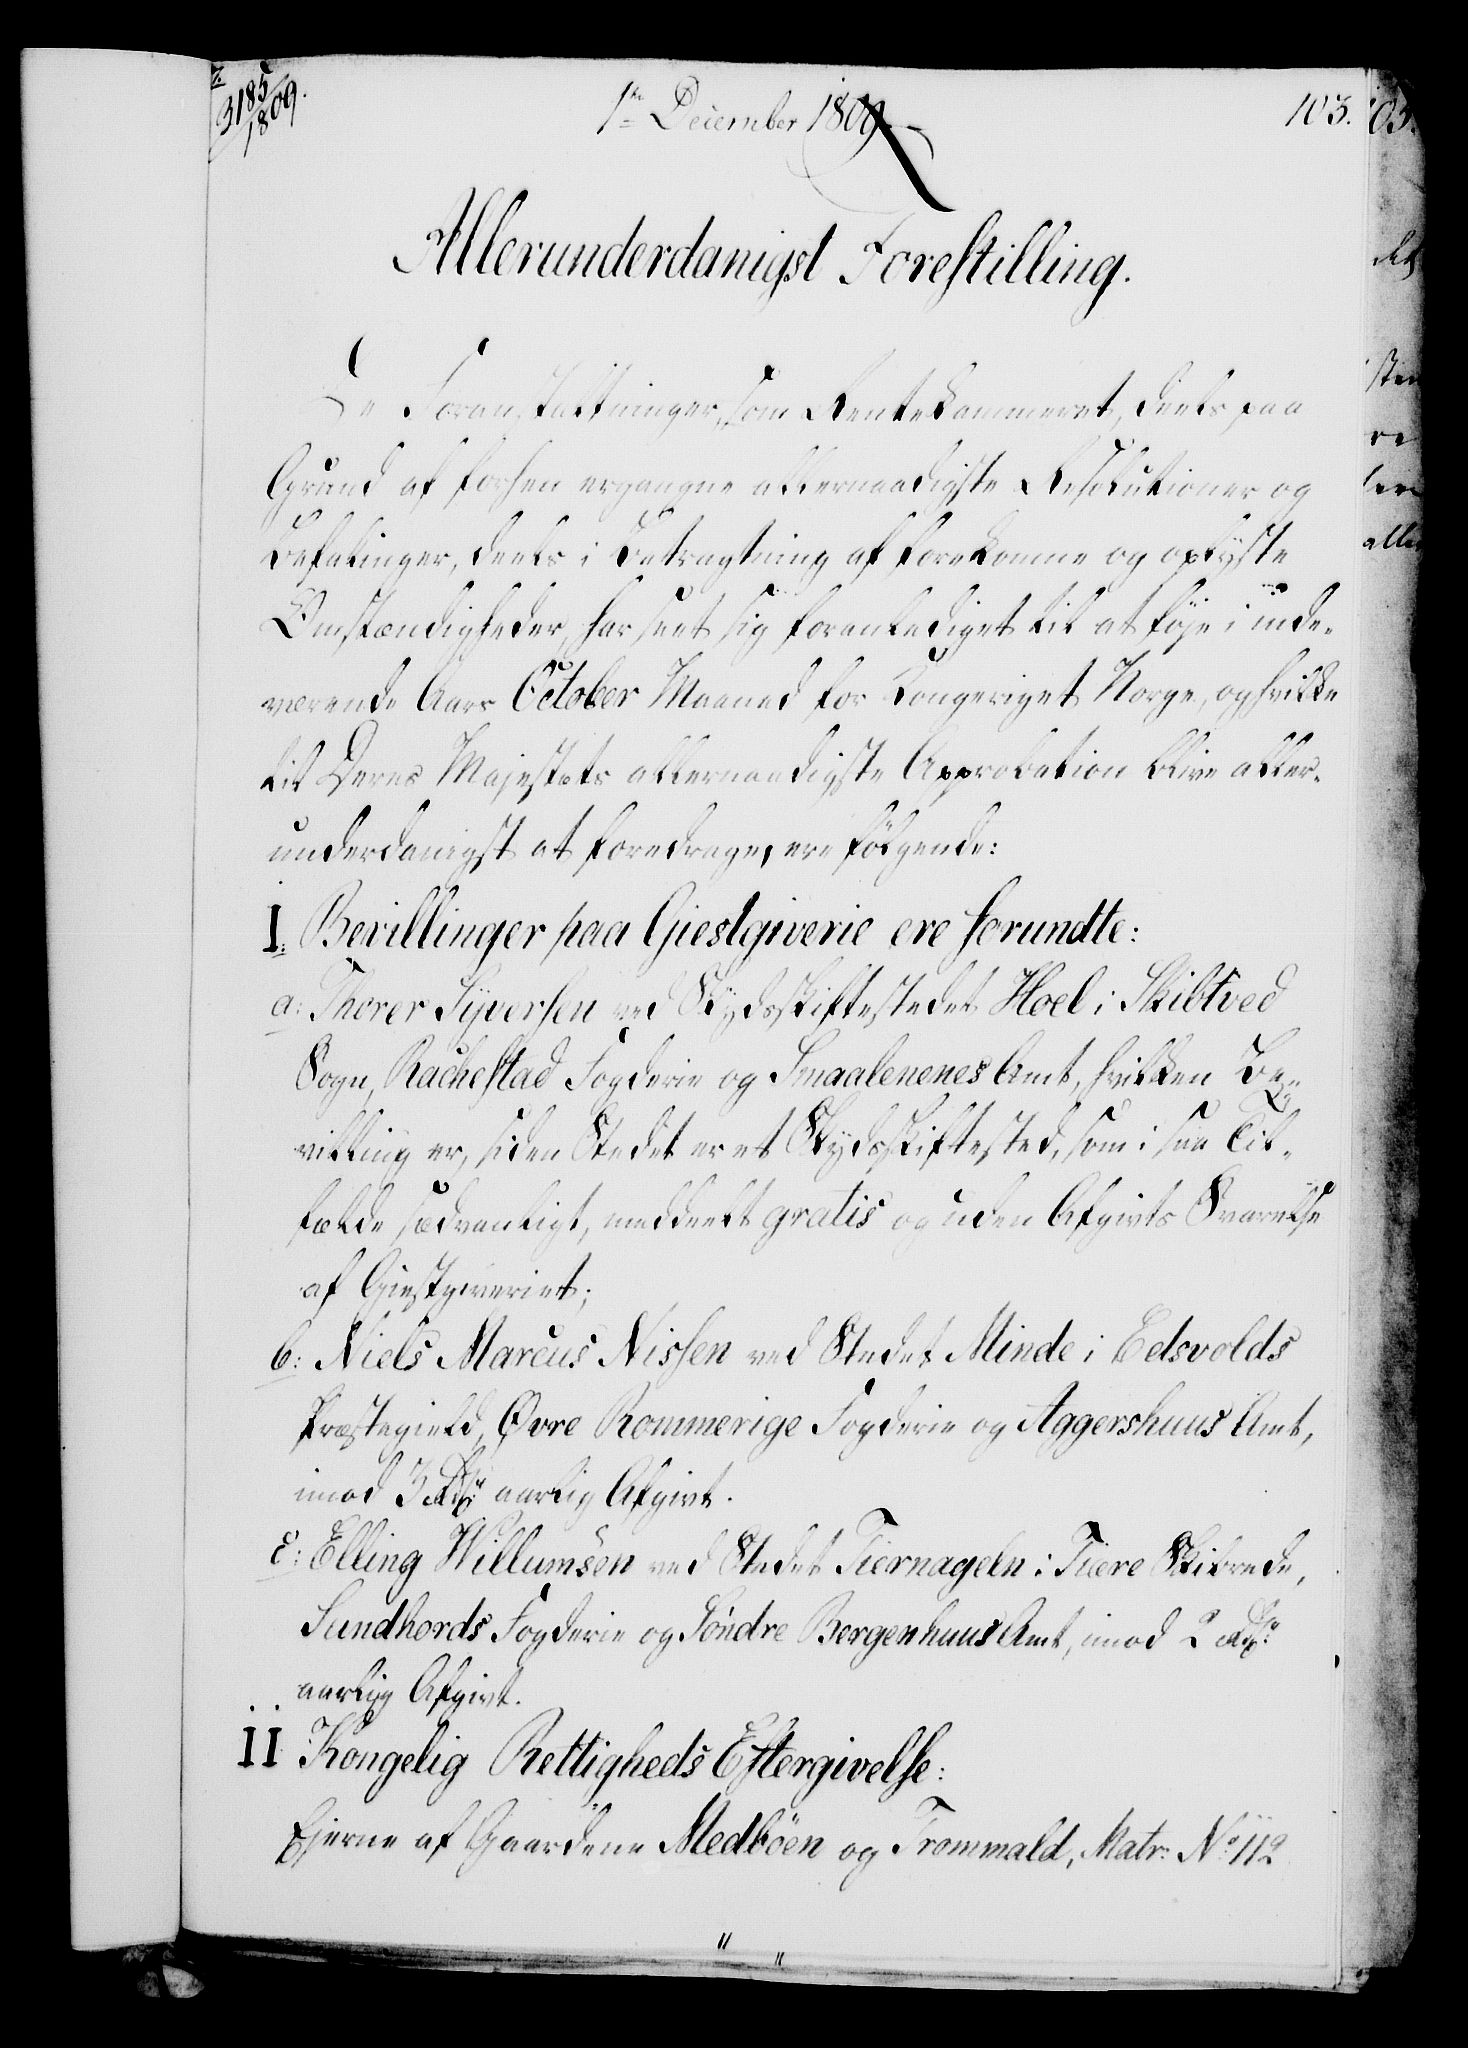 3185/1809.
1te December 1809
103.
Allerunderdanigst Forestilling.
De Foranstaltninger, som Rentekammeret, deels paa
Grund af forhen ergangne allernaadigste Resolutioner og
Befalinger, deels i Betragtning af forekomne og oplyste
Omstændigheder, har seet sig foranlediget til at føje i inde-
værende Aars October Maaned for Kongeriget Norge, og hvilke
til Deres Majestæts allernaadigste Approbation blive aller-
underdanigst at foredrage, ere følgende:
I. Bevillinger paa Giestgiverie ere forundte:
a: Thorer Syversen ved Skydsskiftestedet Hoel i Skibtved
Sogn, Rachestad Fogderie og Smaalenenes Amt, hvilken Be-
villing er, siden Stedet er et Skydsskiftested, som i saa Til-
fælde sædvanligt, meddeelt gratis og uden Afgivts Svarelse
af Giestgiveriet;
b: Niels Marcus Nissen ved Stedet Minde i Edsvolds
Præstegield, Øvre Rommerige Fogderie og Aggershuus Amt,
imod 3 Rdr aarlig Afgivt.
c: Elling Willumsen ved Stedet Tiernageln i Fiere Skibrede,
Sundhords Fogderie og Söndre Bergenhuus Amt, imod 2 Rdr
aarlig Afgivt.
II Kongelig Rettigheds Eftergivelse:
Ejerne af Gaardene Medböen og Trommald, Matr: No 112